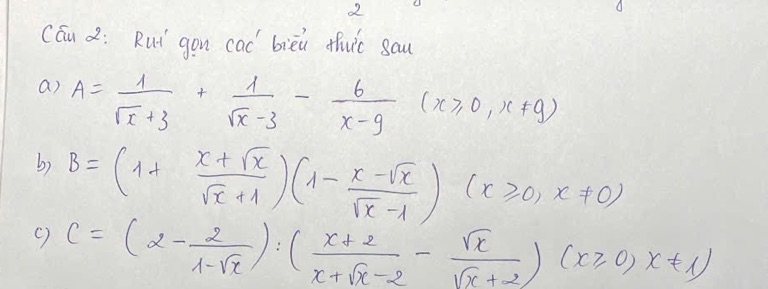 2
Câu 2: Rút gọn các biểu thức sau
a) A = \frac{1}{\sqrt{x}+3} + \frac{1}{\sqrt{x}-3} - \frac{6}{x-9} (x ≥ 0, x ≠ 9)
b) B = \left(1 + \frac{x+\sqrt{x}}{\sqrt{x}+1}\right)\left(1 - \frac{x-\sqrt{x}}{\sqrt{x}-1}\right) (x ≥ 0, x ≠ 0)
c) C = \left(2 - \frac{2}{1-\sqrt{x}}\right) : \left(\frac{x+2}{x+\sqrt{x}-2} - \frac{\sqrt{x}}{\sqrt{x}+2}\right) (x ≥ 0, x ≠ 1)